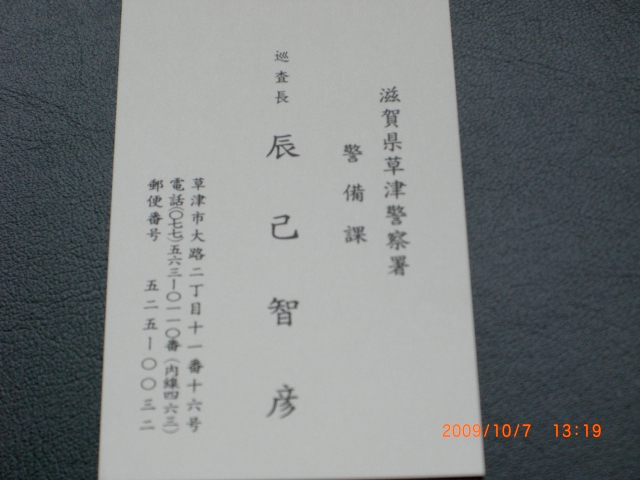 滋賀県草津警察署
警備課
巡査長
辰己智彦
草津市大路二丁目十一番十六号
電話(〇七七)五六三ー〇一一〇番(内線四六三)
郵便番号 五二五ー〇〇三二
2009/10/7 13:19